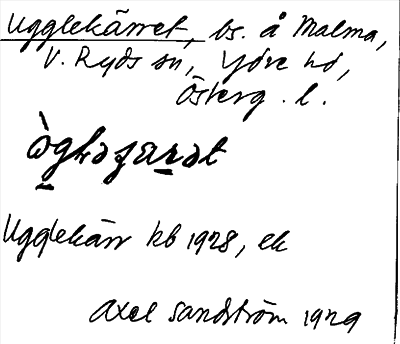 Ugglekärret, bs. å Malma,
V. Ryds sn, Ydre hd,
Österg. l.
Ugglekärr kb 1928, ek
Axel Sandström 1929